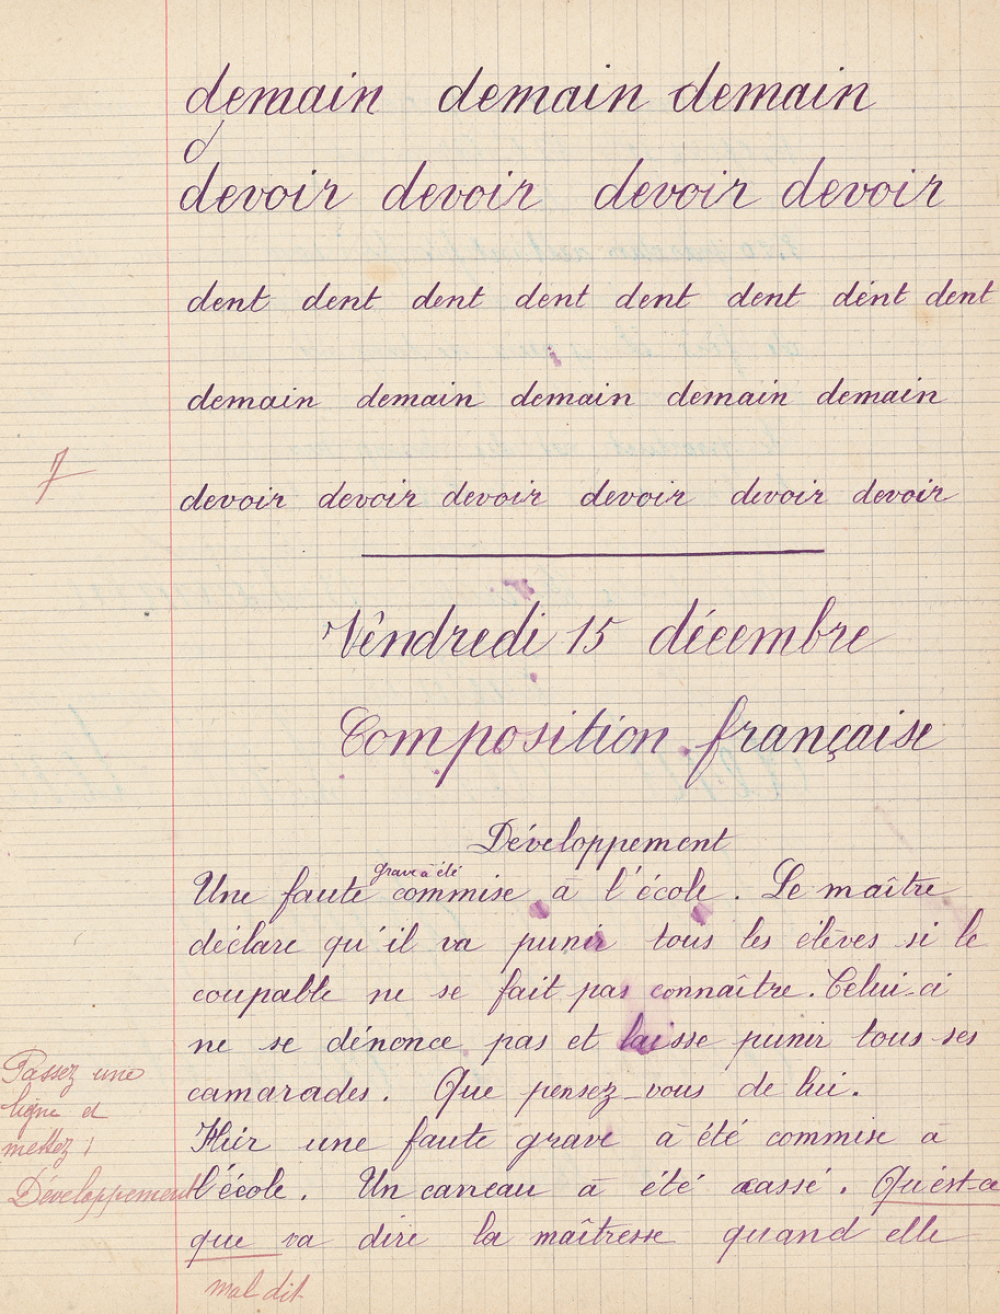 demain demain demain
d
devoir devoir devoir devoir
dent dent dent dent dent dent dént dent
demain demain demain demain demain
devoir devoir devoir devoir devoir devoir
Vendredi 15 décembre
Composition française
Développement
grave à été
Une faute commise à l'école. Le maître
déclare qu'il va punir tous les élèves si le
coupable ne se fait pas connaître. Celui-ci
ne se dénonce pas et laisse punir tous ses
camarades. Que pensez-vous de lui.
Hier une faute grave à été commise à
l'école. Un carreau à été cassé. Qu'est-ce
que va dire la maîtresse quand elle
Passez une
ligne et
mettez :
Développement
mal dit